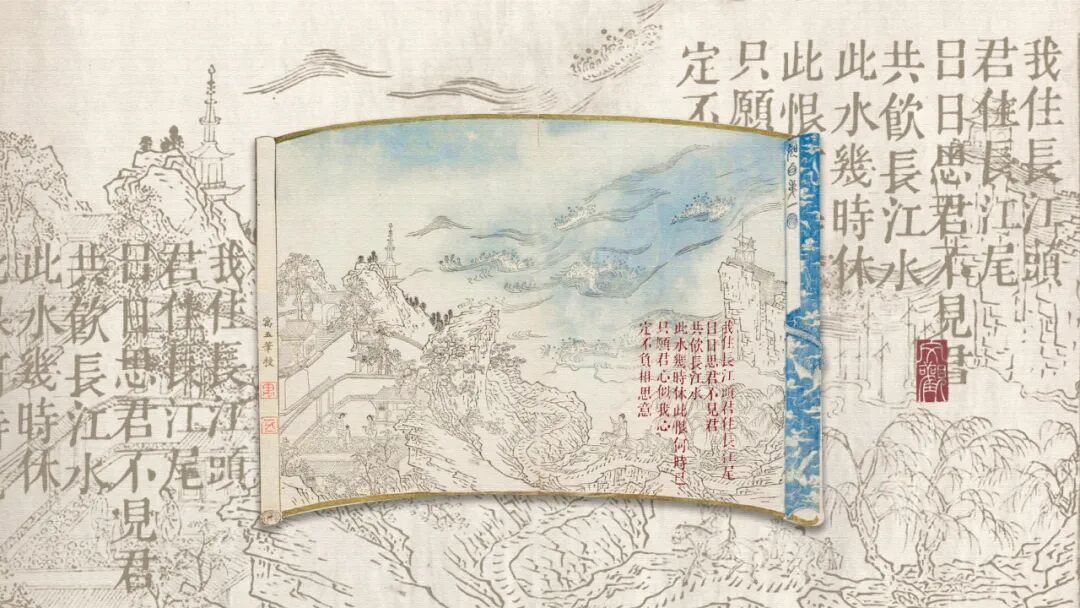 我住長江頭
君住長江尾
日日思君不見君
共飲長江水
此水幾時休
此恨
只願
定不
我住長江頭君住長江尾
日日思君不見君
共飲長江水
此水幾時休此恨何時已
只願君心似我心
定不負相思意
我住長江頭
君住長江尾
日日思君不見君
共飲長江水
此水幾時休